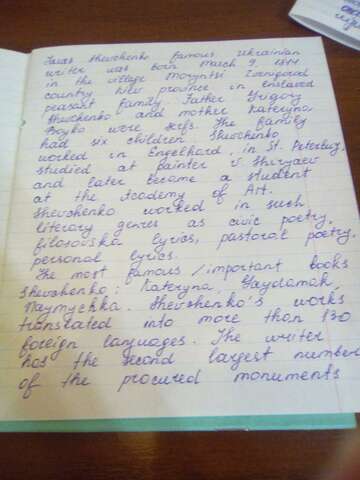 Taras Shevchenko famous Ukrainian
writer was born March 9, 1814
in the village Moryntsi Zvenigorod
country Kiev province in enslaved
peasant family. Father Grigory
Shevchenko and mother Kateryna
Boyko were serfs. The family
had six children. Shevchenko
worked in Engelhard, in St. Peterburg,
studied at painter V. Shiryaev
and later became a student
at the Academy of Art.
Shevchenko worked in such
literary genres as civic poetry,
filosovska lyrics, pastoral poetry,
personal lyrics.
The most famous/important books
Shevchenko: Kateryna, Haydamak,
Naymychka. Shevchenko's works
translated into more than 130
foreign languages. The writer
has the second largest number
of the procured monuments